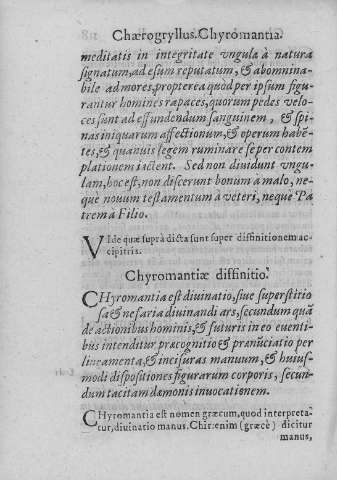 Chærogryllus. Chyromantia.
meditatis in integritate vngula à natura
signatum, ad esum reputatum, & abomnina-
bile ad mores, propterea quòd per ipsum figu-
rantur homines rapaces, quorum pedes velo-
ces sunt ad effundendum sanguinem, & spi-
nas iniquarum affectionum, & operum habẽ-
tes, & quanuis legem ruminare se per contem
plationem iactent. Sed non diuidunt vngu-
lam, hoc est, non discernt bonum à malo, ne-
que nouum testamentum à veteri, neque Pa
trem à Filio.
VIde quæ suprà dicta sunt super diffinitionem ac-
cipitris.
Chyromantiæ diffinitio.
CHyromantia est diuinatio, siue superstitio
sa & nefaria diuinandi ars, secundum quã
de actionibus hominis, & futuris in eo euenti-
bus intenditur præcognitio & pranũciatio per
lineamenta, & incisuras manuum, & huius-
modi dispositiones figurarum corporis, secun-
dum tacitam dæmonis inuocationem.
CHyromantia est nomen græcum, quod interpreta-
tur, diuinatio manus. Chir ænim (græcè) dicitur
manus,